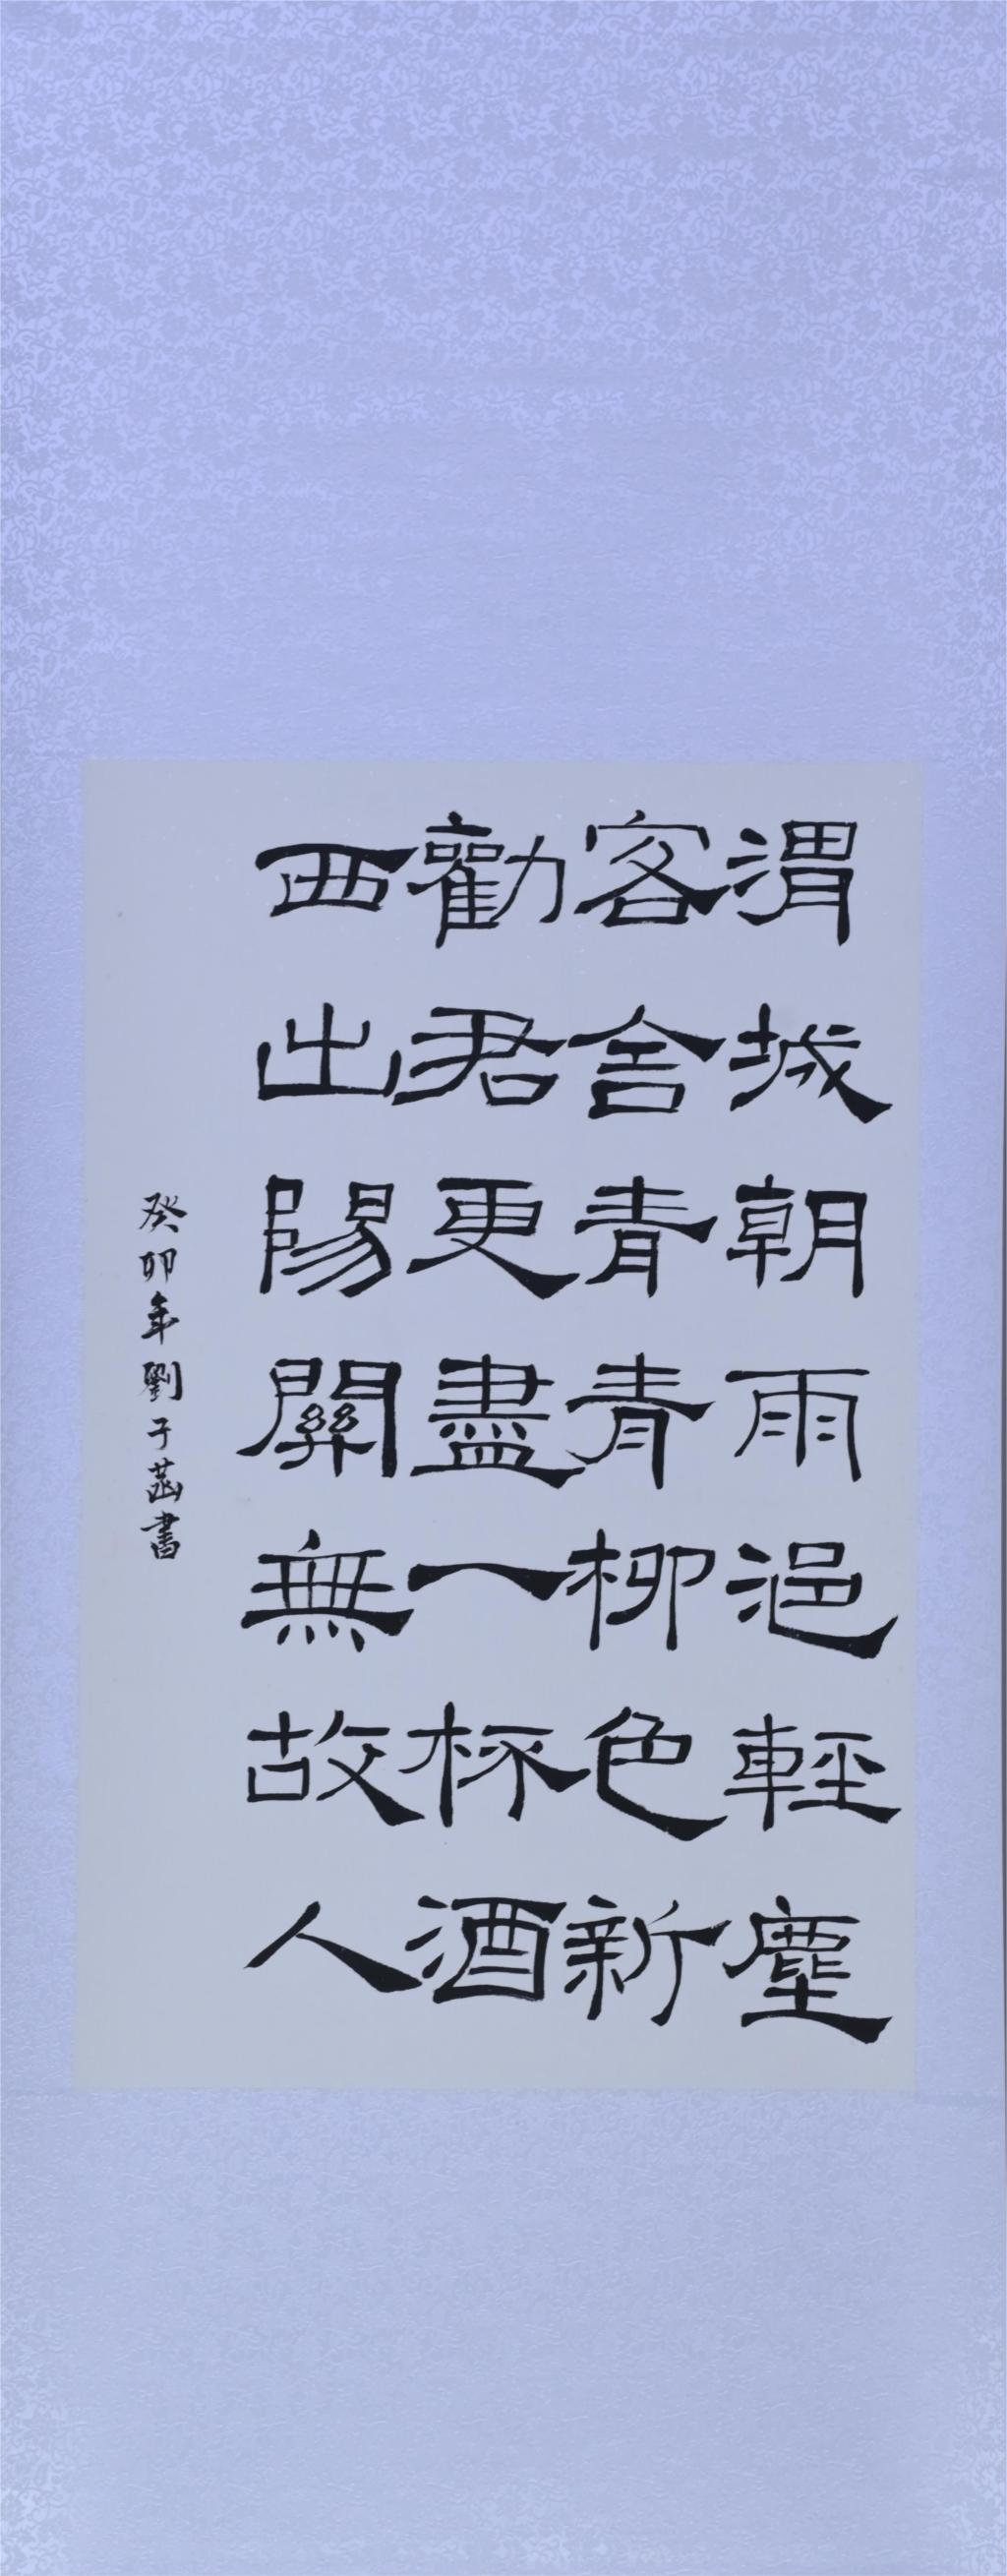 渭城朝雨浥輕塵
客舍青青柳色新
勸君更盡一杯酒
西出陽關無故人
癸卯年劉子菡書